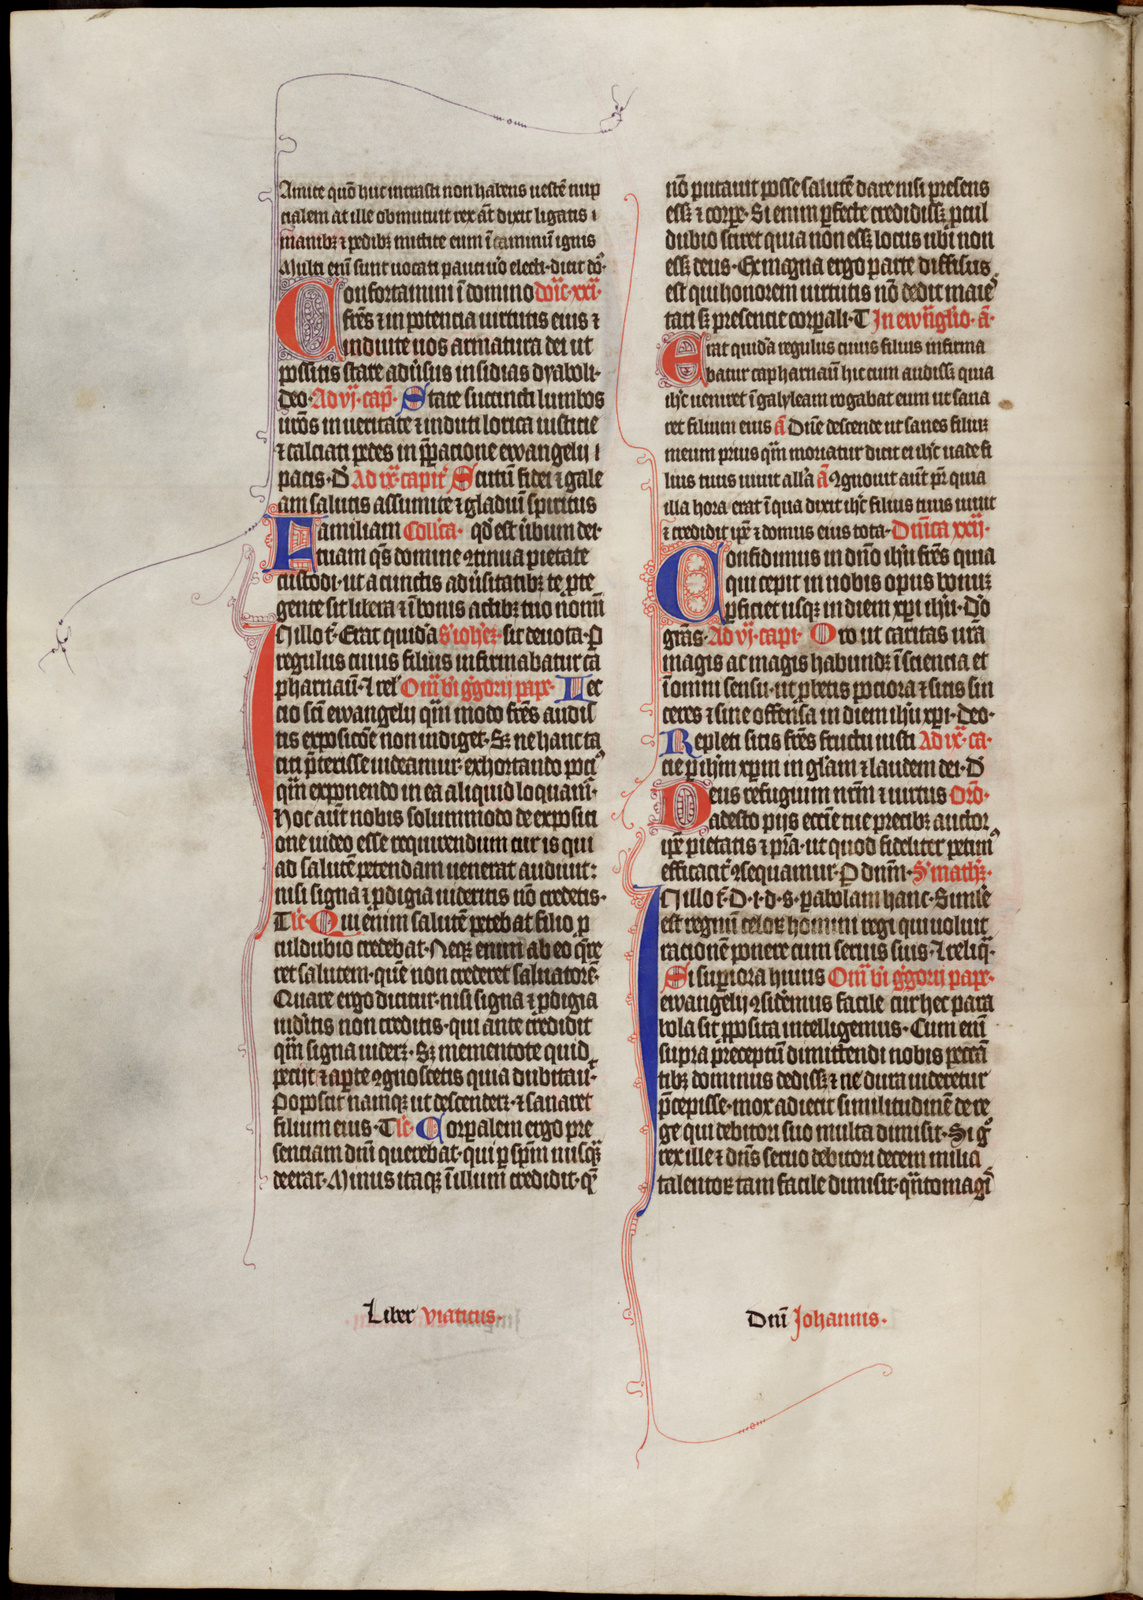 Amice quo͂ huc intrasti non habens ueste͂ nup
cialem at ille obmutuit rex a͂t dixit ligatis i
manibꝫ ⁊ pedibꝫ mittite eum i͂ caminu͂ ignis
Multi eni͂ sunt uocati pauci u͛o electi· dicit do͛·
Confortamini i͂ domino do͂ic· xxi·
fr͂es ⁊ in potencia uirtutis eius ⁊
induite uos armatura dei ut
possitis stare adu͛sus insidias dyaboli·
deo· Ad vj· cap͂· State succincti lumbos
ur͂os in ueritate ⁊ induti lorica iusticie
⁊ calciati pedes in p͂pacione ewangelij i
pacis· D͛ Ad ix· capit͛ Scutu͂ fidei ⁊ gale
am salutis assumite ⁊ gladiu͂ spiritus
Familiam Coll͛ca· qd͛ est u͛bum dei·
tuam q͂s domine ꝯtinua pietate
custodi· ut a cunctis adu͛sitatibꝫ te p͛te
gente sit libera ⁊ i͂ bonis actibꝫ tuo nomi͂
In illo t͂· Erat quida͂ S͛ ioh͛eꝫ· sit deuota· P
regulus cuius filius infirmabatur ca
pharnau͂· ⁊ rel͛ Om͂ b͛i g͛gorij pape· Lec
cio sc͂i ewangelij qm͂ modo fr͂es audis
tis exposico͂e non indiget· Sꝫ ne hanc ta
citi p͂terisse uideamur· exhortando poci͛
qm͂ exponendo in ea aliquid loquam͛·
Hoc aut͂ nobis solummodo de exposici
one uideo esse requirendum cur is qui
ad salute͂ petendam uenerat audiuit:
nisi signa ⁊ ꝓdigia uideritis no͂ credetis·
Tic· Qui enim salute͂ petebat filio ꝓ
culdubio credebat· Neqꝫ enim ab eo q͂re
ret salutem· que͂ non crederet saluatore͂·
Quare ergo dicitur· nisi signa ⁊ ꝓdigia
uid͛itis non creditis· qui ante credidit
qm͂ signa uideꝫ· Sꝫ mementote quid
peciit ⁊ apte ꝯgnoscetis quia dubitau͛·
Poposcit namqꝫ ut descendeꝫ· ⁊ sanaret
filium eius· Tic· Corpalem ergo pre
senciam dn͂i querebat· qui ꝑ sp͂m nusqꝫ
deerat· Minus itaqꝫ i͂ illum credidit· q͂
no͂ putauit posse salute͂ dare nisi presens
essꝫ ⁊ corpe· Si enim ꝑfecte credidissꝫ ꝓcul
dubio sciret quia non essꝫ locus ubi non
essꝫ deus· Ex magna ergo parte diffisus
est qui honorem uirtutis no͂ dedit maie͛
tati sꝫ presencie corpali· T In ew͂aglio· a͂·
Erat quida͂ regulus cuius filius infirma
batur capharnau͂ hic cum audissꝫ quia
ih͛c ueniret i͂ galyleam rogabat eum ut sana
ret filium eius a͂ Dn͂e descende ut sanes filiuꝫ
meum prius qm͂ moriatur dicit ei ih͛c uade fi
lius tuus uiuit all͛a a͂ ꝯgnouit aut͂ pr͂ quia
illa hora erat i͂ qua dixit ih͛c filius tuus uiuit
⁊ credidit ip͛e ⁊ domus eius tota· Dn͂ica xxij·
Confidimus in dn͂o ih͛u fr͂es quia
qui cepit in nobis opus bonuꝫ
ꝑficiet usqꝫ in diem xp͂i ih͛u· D͛o
gr͂as· Ad vj· capi· Oro ut caritas ur͂a
magis ac magis habundꝫ i͂ sciencia et
i͂ omni sensu· ut ꝓbetis pociora ⁊ sitis sin
ceres ⁊ sine offensa in diem ih͛u xp͂i· deo·
Repleti sitis fr͂es fructu iusti Ad ix· ca·
cie ꝑ ih͛m xp͂m in gl͂am ⁊ laudem dei· D͛
Deus refugium nr͂m ⁊ uirtus Or͂o·
adesto pijs eccl͂ie tue precibꝫ auctor
ip͛e pietatis ⁊ p͂sta· ut quod fideliter petim͛
efficacit͛ ꝯsequamur· P dnm͂· S͛ mathꝫ·
In illo t͂· D· i· d· s· pabolam hanc· Simile
est regnu͂ celoꝝ homini regi qui uoluit
racione͂ ponere cum seruis suis· ⁊ reliq͛·
Si supiora huius Om͂ b͛i g͛gorij pape·
ewangelij ꝯsid͛emus facile cur hec para
bola sit ꝓposita intelligemus· Cum eni͂
supra preceptu͂ dimittendi nobis pecca͂
tibꝫ dominus dedissꝫ ⁊ ne dura uideretur
p͂cepisse· mox adiecit similitudine͂ de re
ge qui debitori suo multa dimisit· Si g͛
rex ille ⁊ dn͂s seruo debitori decem milia
talentoꝝ tam facile dimisit· qn͂tomagi͛
Liber viaticus·
Dn͂i Johannis·